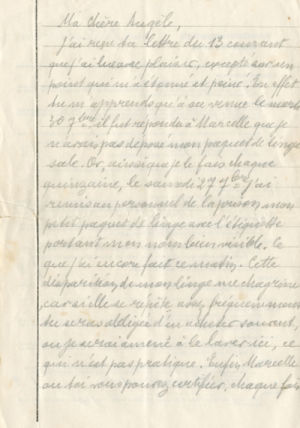 Ma chère Angèle,
J'ai reçu ta lettre du 13 courant
que j'ai lu avec plaisir, excepté sur un
point qui m'a étonné et peiné. En effet
tu m'apprends qu'à sa venue le mardi
30 7bre, il fut répondu à Marcelle que je
n'avais pas déposé mon paquet de linge
sale. Or, ainsi que je le fais chaque
quinzaine, le samedi 27 7bre j'ai
remis au personnel de la prison mon
petit paquet de linge avec l'étiquette
portant mon nom bien visible, ce
que j'ai encore fait ce matin. Cette
disparition de mon linge me chagrine
car si elle se répète avec fréquemment
tu seras obligée d'en acheter souvent,
ou je serai amené à le laver ici, ce
qui n'est pas pratique. Enfin Marcelle
ou toi vous pouvez certifier, chaque fois